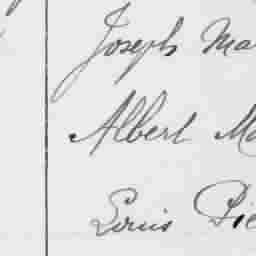 Joseph Ma
Albert Ma
Louis Pie